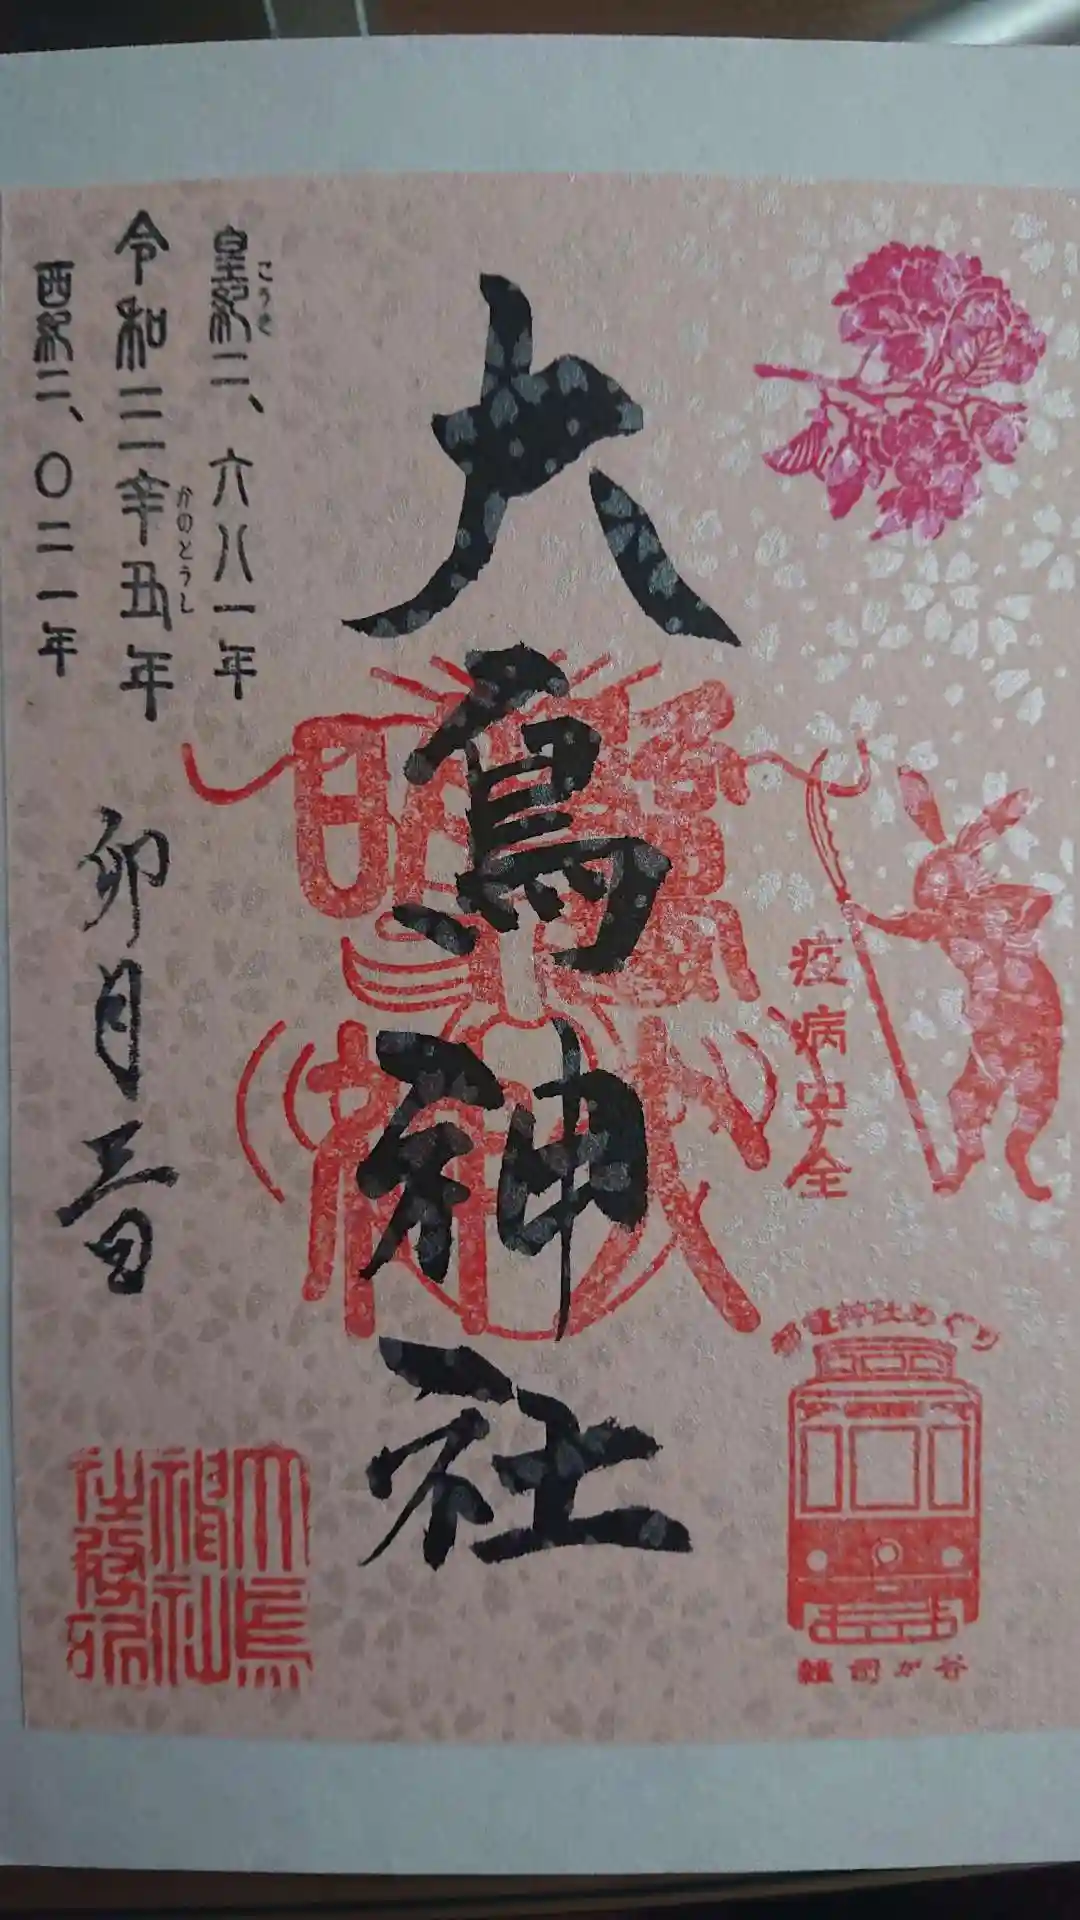 疫病安全
都電神社めぐり
雑司が谷
大鳥神社
皇紀二、六八一年
こうき
令和三辛丑年
かのとうし
西紀二、〇二一年
卯月三日